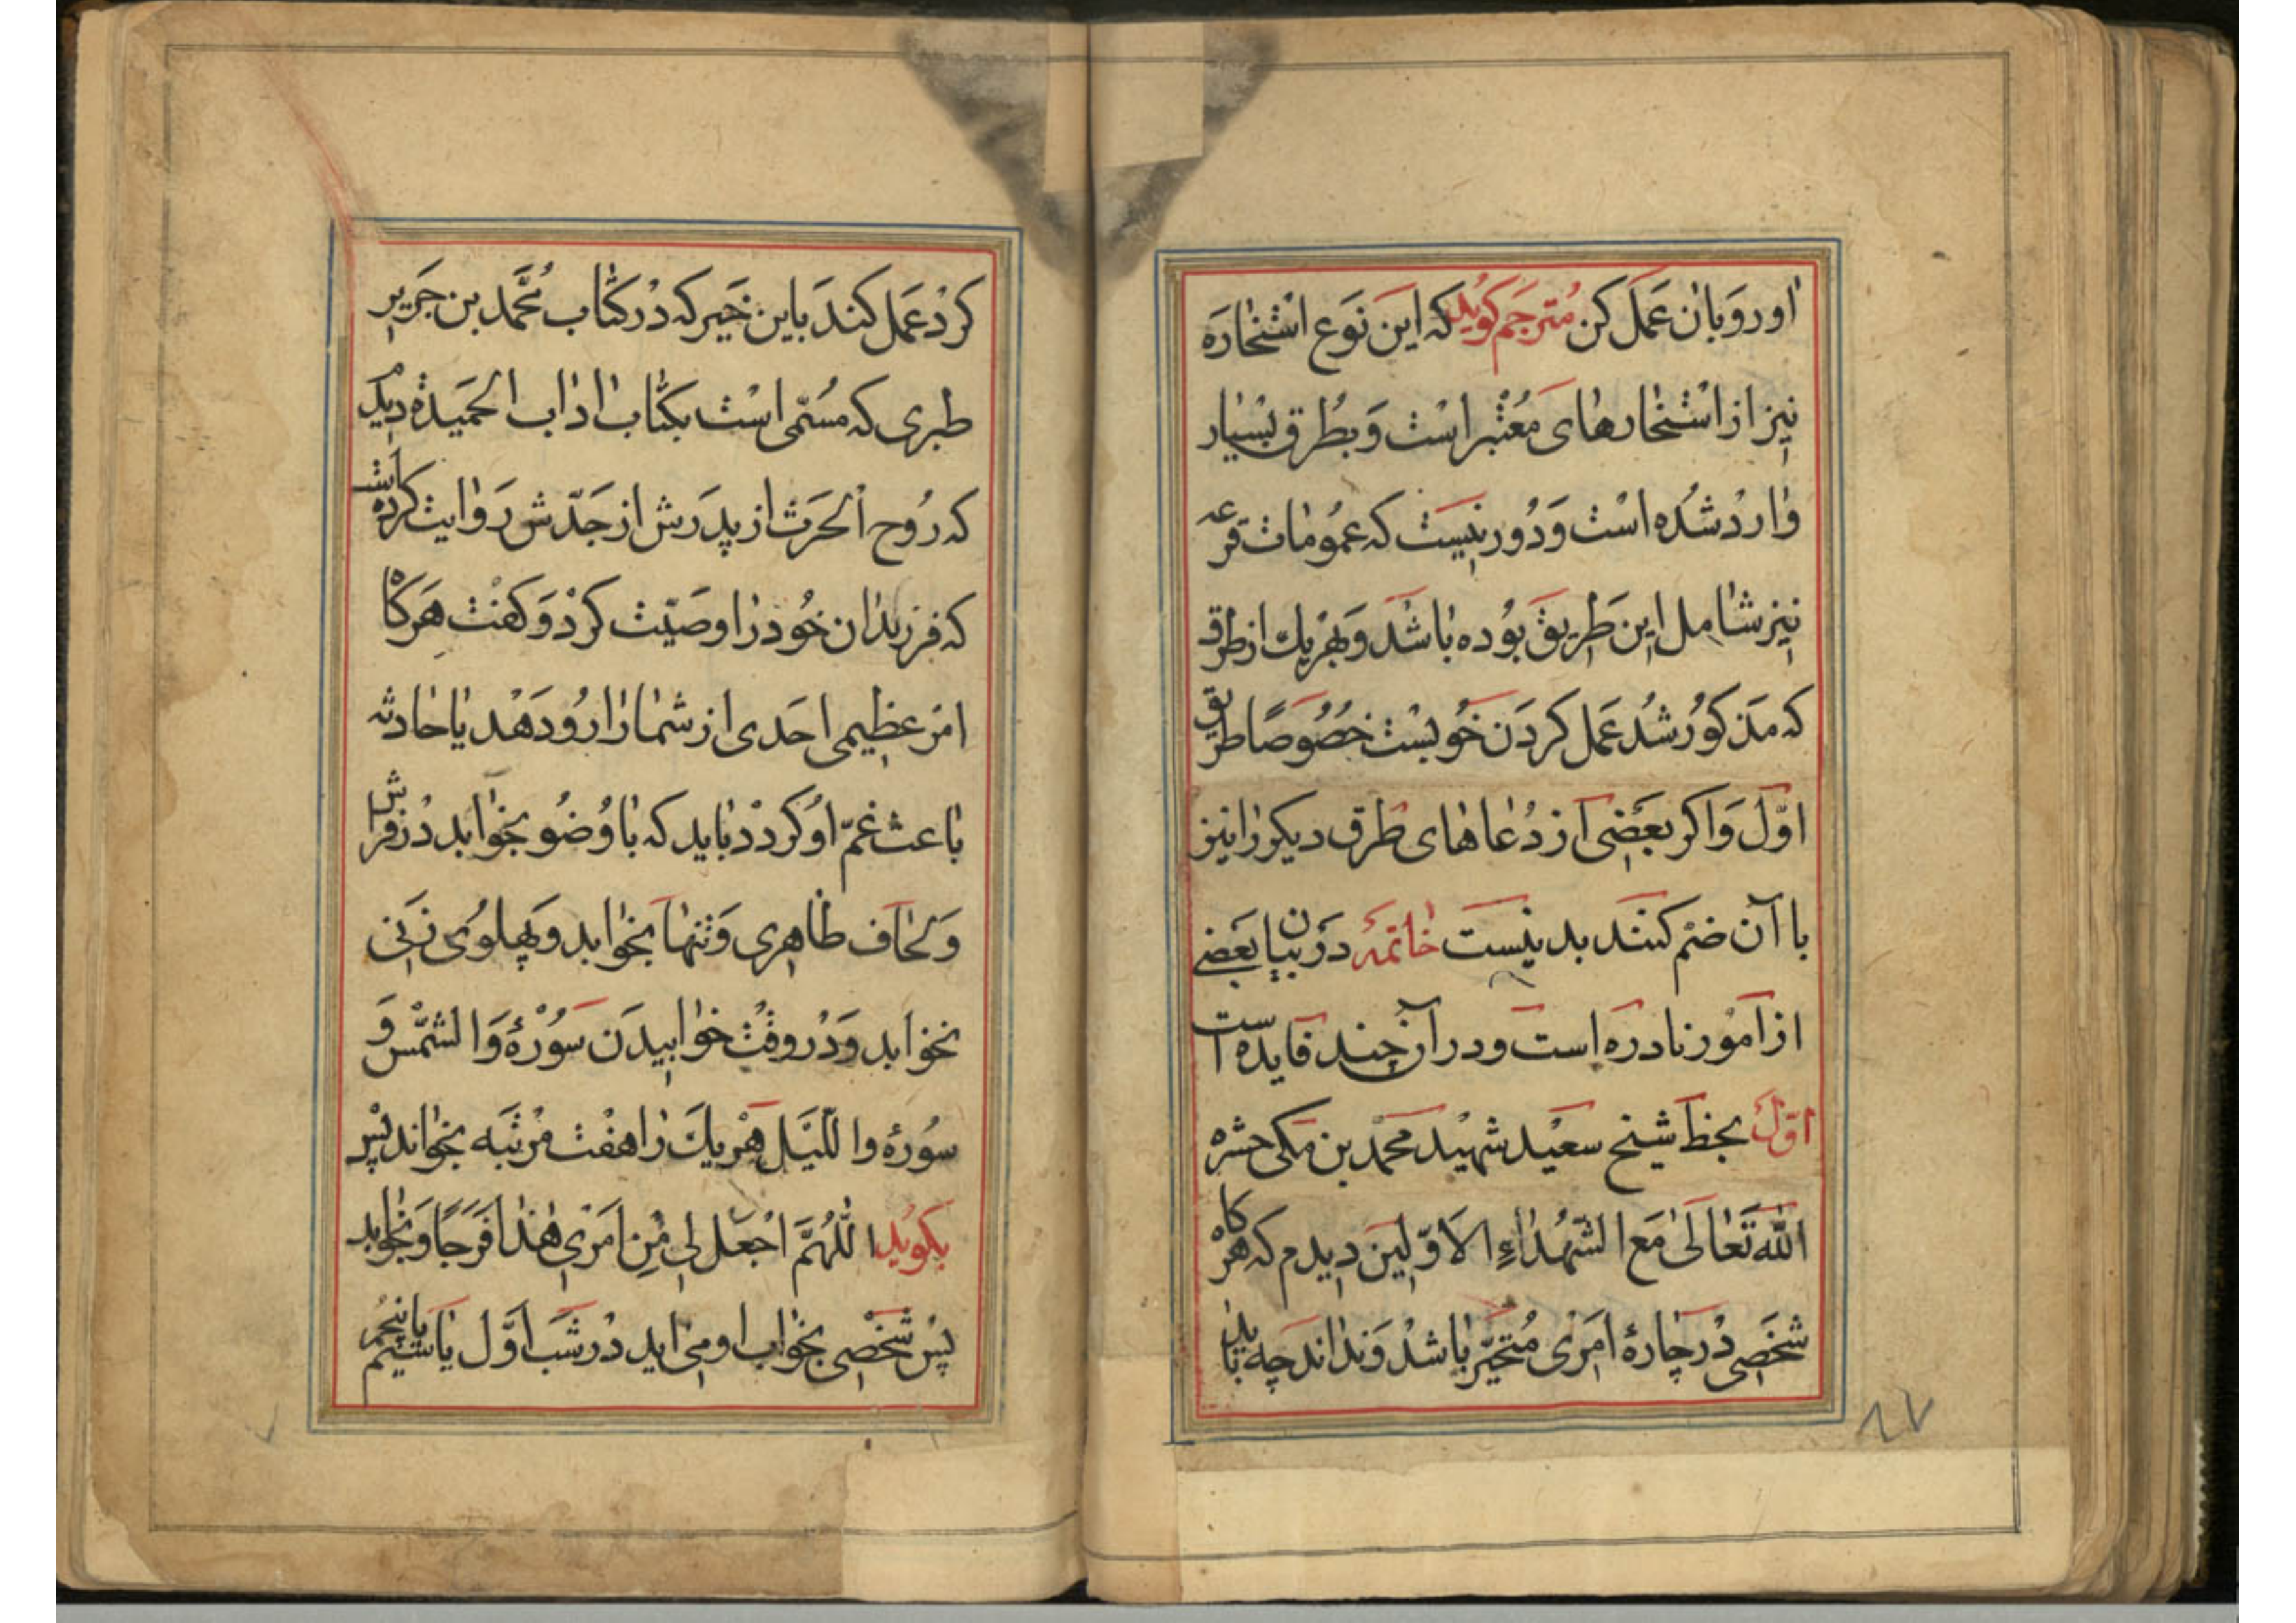 اورو بان عمل کن مترجم کوید که این نوع استخاره
نیز از استخارهای معتبر است و بطرق بسیار
وارد شده است و دور نیست که عمومات قرعه
نیز شامل این طریق بوده باشد و بهر یک از طرق
که مذکور شد عمل کردن خوبست خصوصا طریق
اول و اکر بعضی از دعاهای طرق دیکر را نیز
با آن ضم کنند بد نیست خاتمه در بیان بعضی
از امور نادره است و در آن چند فایده است
اول بخط شیخ سعید شهید محمد بن مکی حشره
الله تعالی مع الشهداء الاولین دیدم که هرکاه
شخصی در چارهٔ امری متحیر باشد و نداند چه باید
کرد عمل کند باین خبر که در کتاب محمد بن جریر
طبری که مسمی است بکتاب اداب الحمیدة دیدم
که روح الحرث از پدرش از جدش روایت کرده است
که فرزندان خود را وصیت کرد و کفت هرکاه
امر عظیمی احدی از شما را رو دهد یا حادثه
باعث غم او کردد باید که با وضو بخوابد در فراش
و لحاف طاهری و تنها بخوابد و پهلوی زنی
نخوابد و در وقت خوابیدن سورهٔ والشمس و
سورهٔ واللیل هر یک را هفت مرتبه بخواند پس
بکوید اللهم اجعل لی من امری هذا فرجا و بخوابد
پس شخصی بخواب او می اید در شب اول یا سیم یا پنجم
۸۷